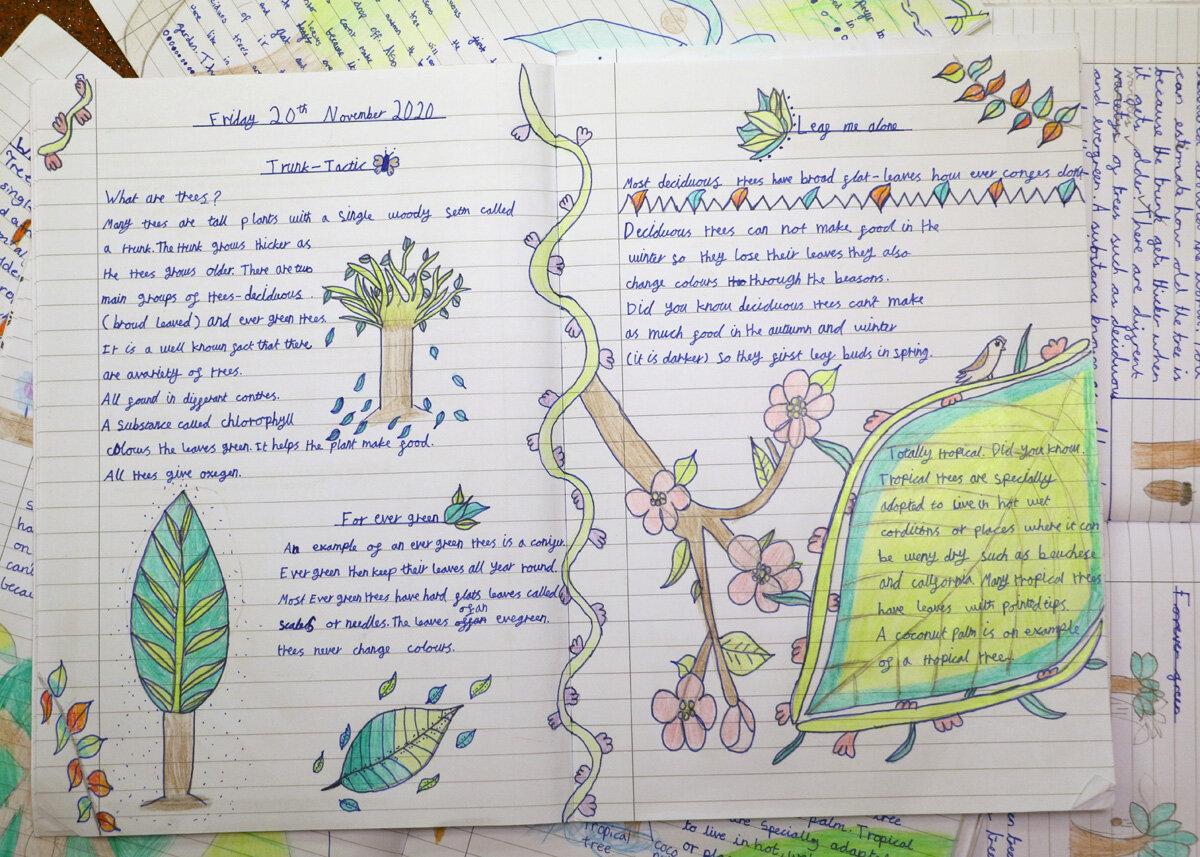 Friday 20th November 2020
Trunk-Tactic
What are trees?
Many trees are tall plants with a single woody setm called
a trunk. The trunk grows thicker as
the trees grows older. There are two
main groups of trees-deciduous
(broud leaved) and ever green trees.
It is a well known fact that there
are avariety of trees.
All found in diggerant contres.
A substance called chlorophyll
colours the leaves green. It helps the plant make good.
All trees give oxegen.
For ever green
An example of an ever green trees is a coniger.
Ever green then keep their leaves all year round.
Most Ever green trees have hard glats leaves called
scales or needles. The leaves of an evegreen.
trees never change colours.
Leag me alone
Most deciduous trees have broad glat-leaves how ever conges dont
Deciduous trees can not make good in the
winter so they lose their leaves they also
change colours through the beasons.
Did you know deciduous trees cant make
as much good in the autumn and winter
(it is darker) so they first leag buds in spring.
Totally tropical. Did-you know.
Tropical trees are specially
adopted to live in hot wet
conditions or places where it can
be weny dry, such as beuchese
and caligornia. Many tropical trees
have leaves with pointed tips.
A coconut palm is on example
of a tropical tree.
can estemate how old the tree is
because the trunk gets thicker when
it gets older. There are digerent
varietys of trees such an deciduous
and evergreen. A substance known as
Forever green
Tropical
tree
palm. Tropical
are specially adapte
to live in hot, we
or pla